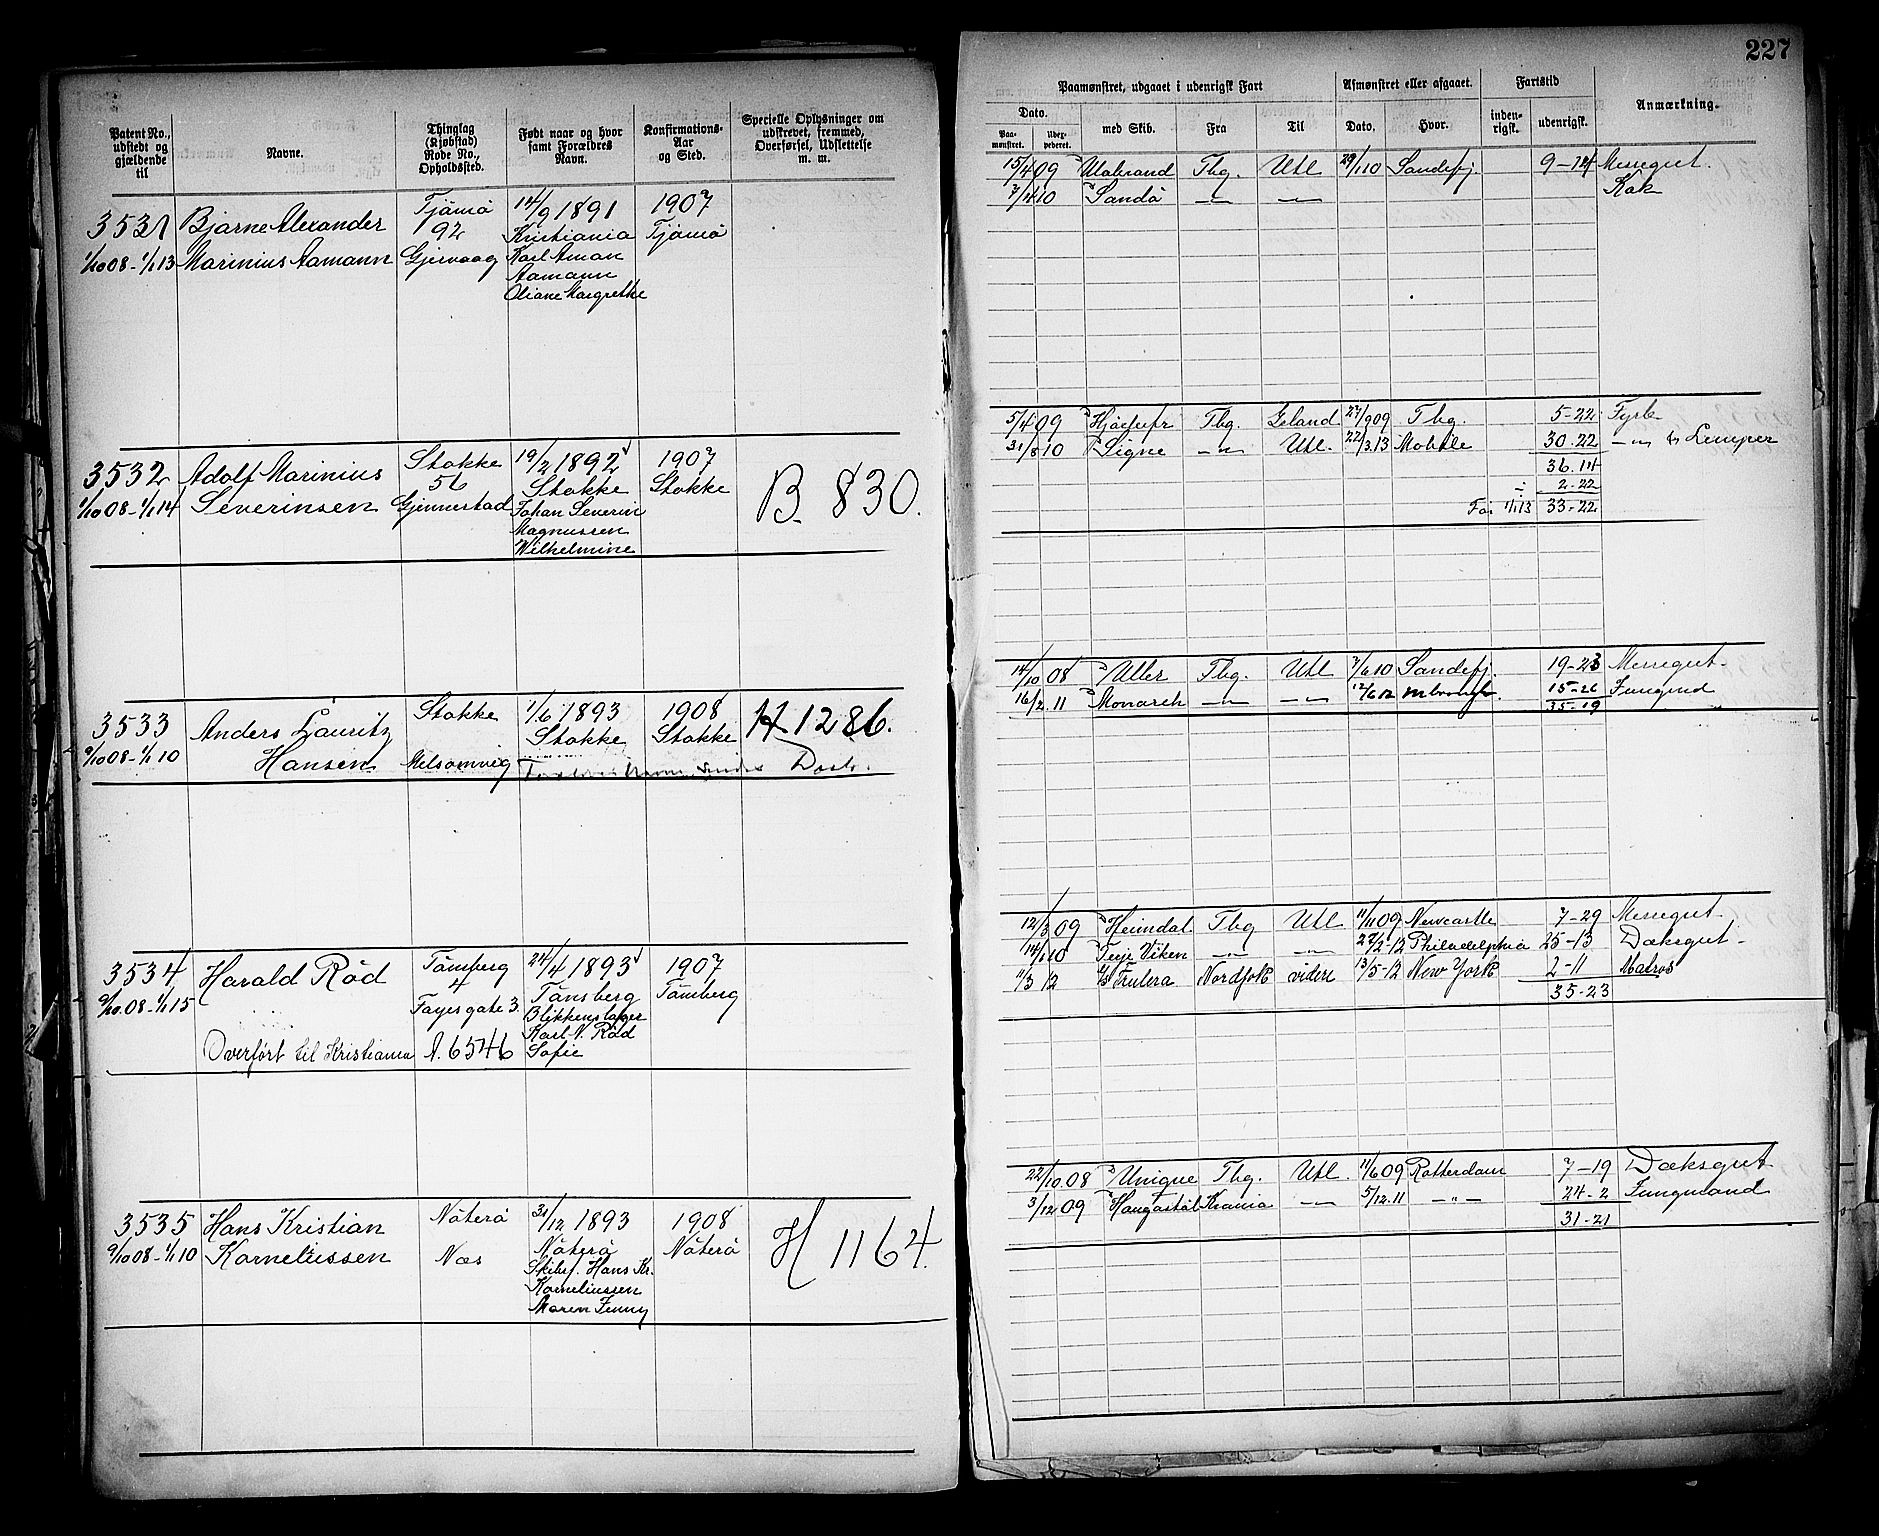 227
Patent No., udstedt og gjældende til
Navne.
Thinglag (Kjøbstad) Rode No., Opholdssted.
Født naar og hvor samt Forældres Navn.
Konfirmations-Aar og Sted.
Specielle Oplysninger om udskrevet, fremmed, Overførsel, Udslettelse m. m.
Paamønstret, udgaaet i udenrigsk Fart
Afmønstret eller afgaaet.
Fartstid
Anmærkning.
Dato.
Paa-mønstret.
med Skib.
Fra
Til
Dato.
Hvor.
inden-rigsk.
udenrigsk.
3531 Bjarne Alexander Tjømø 14/9 1891 1907
1/10 08 - 1/1 13 Marinius Aamann 92 Kristiania Tjømø
Gjervaag Karl Aman
Aamann
Oliane Margrethe
15/4 09 Ulabrand Tbg. Utl 29/1 10 Sandefj. 9-14 Messegut.
7/4 10 Sandø -"- -"- Kok
3532 Adolf Marinius Stokke 19/2 1892 1907 B. 830.
1/10 08 - 1/1 14 Severinsen 56 Stokke Stokke
Gjennestad Johan Severin
Magnussen
Wilhelmine
5/4 09 Tbg. 27/9 09 Tbg. 5-22 Fyrb
31/8 10 Signe -"- Utl. 22/3 13 Mobile 30.22 -"- Lemper
36.14
÷ 2-22
1/1 13 33-22
3533 Anders Lauritz Stokke 1/6 1893 1908 H 1286.
9/10 08 - 1/1 10 Hansen Melsomvig Stokke Stokke
14/10 08 Uller Tbg. Utl 7/6 10 Sandefj. 19-23 Messegut.
16/2 11 Monarch -"- -"- 12/6 12 15-26 Jungmd
35-19
3534 Harald Rød Tønsberg 24/4 1893 1907
9/10 08 - 1/1 15 4 Tønsberg Tønsberg
Fayesgate 3. Blikkenslager
Karl N. Rød
Overført til Kristiania A. 6546 Sofie
12/3 09 Heimdal Tbg Utl 11/11 09 Newcastle 7-29 Messegut.
14/1 10 Terje Viken -"- -"- 27/2-12 Philadelphia 25-13 Dæksgut.
11/3 12 Nordfolk videre 13/5-12 New York 2-11 Matros
35-23
3535 Hans Kristian Nøterø 31/12 1893 1908 H 1164.
9/10 08 - 1/1 10 Korneliussen Næs Nøterø Nøterø
Skibsf. Hans Kr.
Korneliussen
Maren Jenny
22/10 08 Unique Tbg. Utl. 11/6 09 Rotterdam 7-19 Dæksgut
3/12 09 Haugastøl Krania -"- 5/12.11 -"- 24-2 Jungmand
31-21